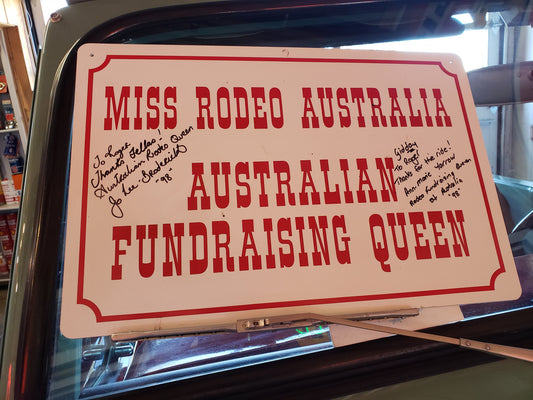 MISS RODEO AUSTRALIA
AUSTRALIAN
FUNDRAISING QUEEN
Thanks Fellas!
Australian Rodeo Queen
Jo Lee Broderick
-98-
Gidday
To Roger
Thanks for the ride!
Ann-marie
Rodeo Fundraising Queen
of Australia
"98"